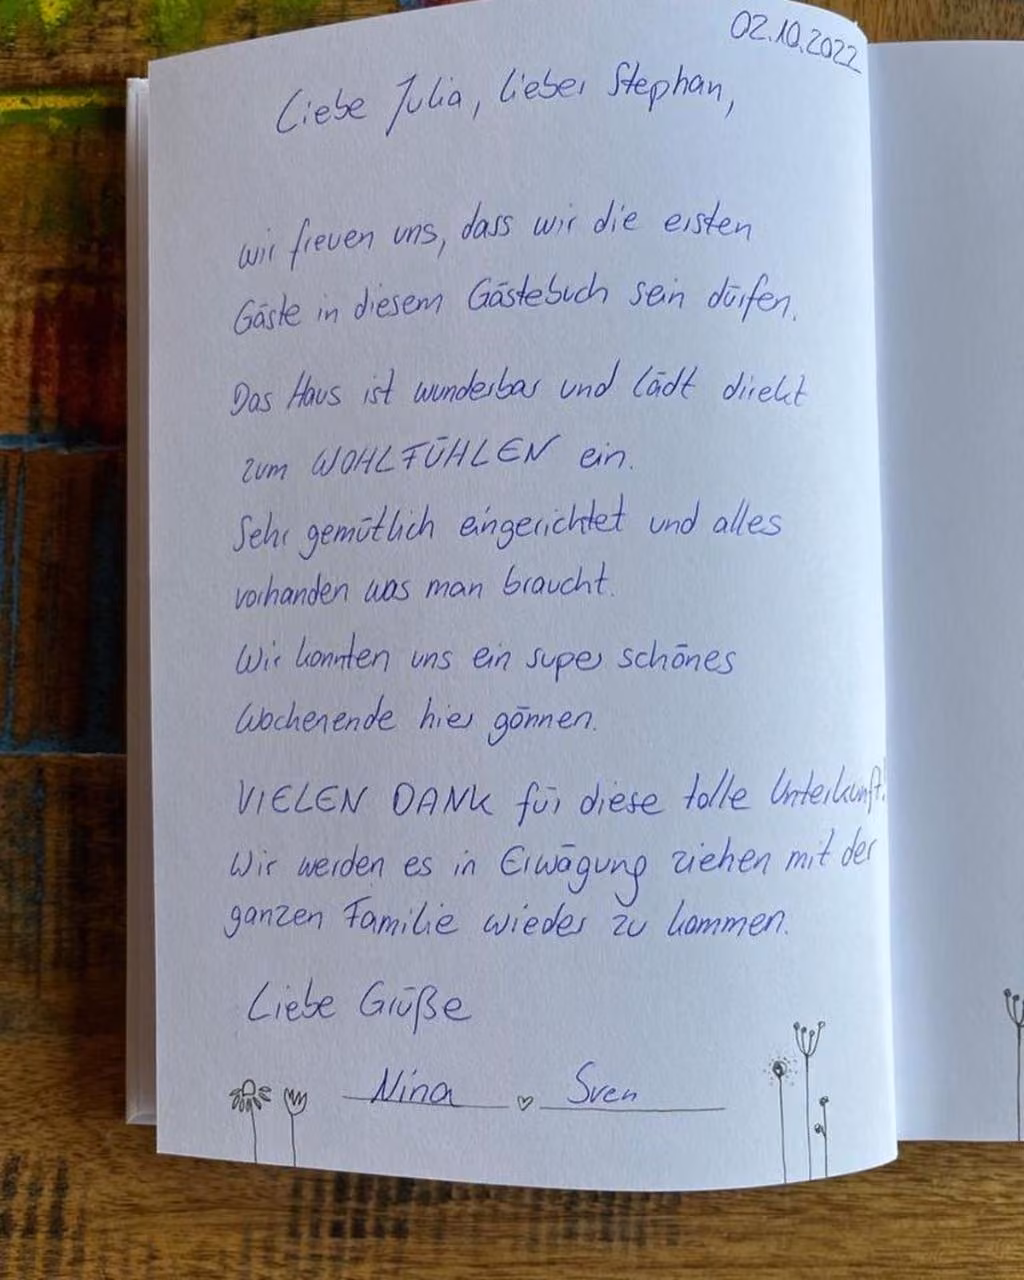 02.10.2022
Liebe Julia, lieber Stephan,
wir freuen uns, dass wir die ersten
Gäste in diesem Gästebuch sein dürfen.
Das Haus ist wunderbar und lädt direkt
zum WOHLFÜHLEN ein.
Sehr gemütlich eingerichtet und alles
vorhanden was man braucht.
Wir konnten uns ein super schönes
Wochenende hier gönnen.
VIELEN DANK für diese tolle Unterkunft!
Wir werden es in Erwägung ziehen mit der
ganzen Familie wieder zu kommen.
Liebe Grüße
Nina ♡ Sven